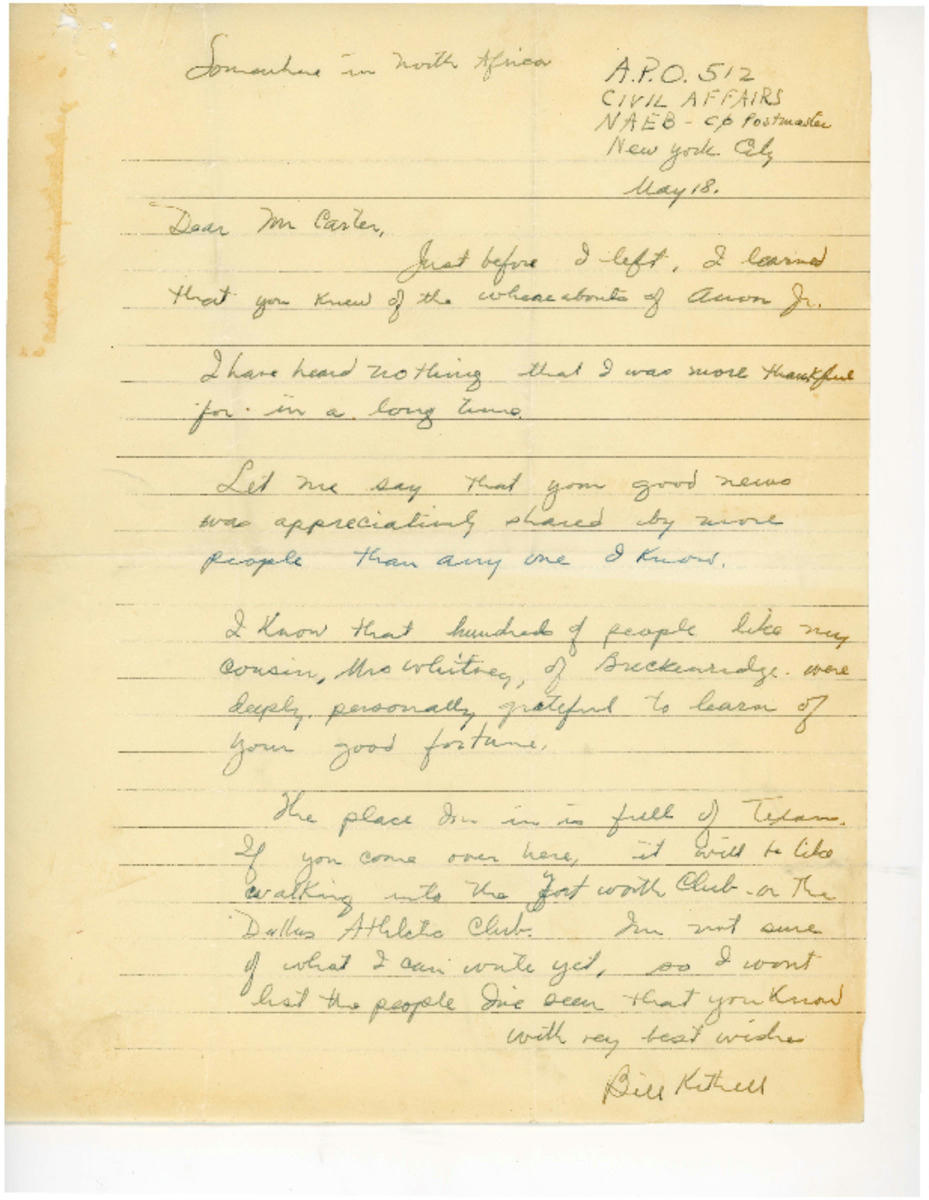 Somewhere in North Africa
A.P.O. 512
CIVIL AFFAIRS
NAEB - c/o Postmaster
New York City
May 18.
Dear Mr Carter,
Just before I left, I learned
that you knew of the whereabouts of Amon Jr.
I have heard nothing that I was more thankful
for in a long time.
Let me say that your good news
was appreciatively shared by more
people than any one I know.
I know that hundreds of people like my
cousin, Mrs Whitney, of Breckenridge were
deeply, personally grateful to learn of
your good fortune.
The place I'm in is full of Texans.
If you come over here, it will be like
walking into the Fort Worth Club - or The
Dallas Athletic Club. I'm not sure
of what I can write yet, so I wont
list the people I've seen that you know
with my best wishes
Bill Kittrell